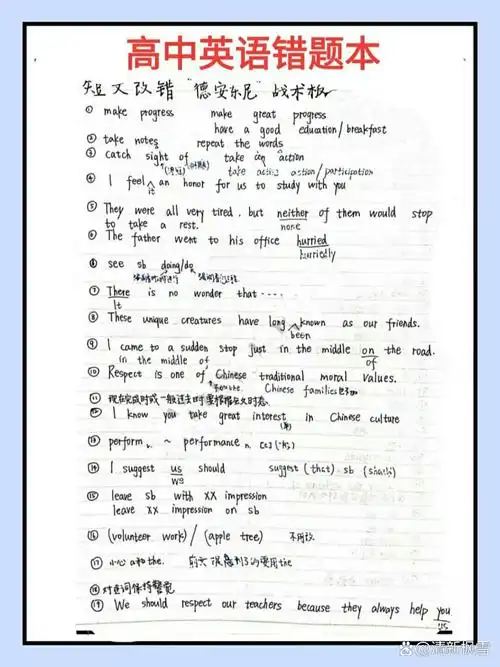 高中英语错题本
短文改错 "德安东尼" 战术板
① make progress make great progress
have a good education/breakfast
② take notes repeat the words
③ catch sight of take an action
take active action/participation
④ I feel ^ an honor for us to study with you
it
⑤ They were all very tired, but neither of them would stop
to take a rest. none
⑥ The father went to his office hurried
hurriedly
⑥ see sb doing/do
⑦ There is no wonder that ····
It
⑧ These unique creatures have long ^ known as our friends.
been
⑨ I came to a sudden stop just in the middle on the road.
in the middle of of
⑩ Respect is one of Chinese traditional moral values.
Chinese families
⑪ 现在完成时或一般过去时要根据上文时态.
⑫ I know you take great interest in Chinese culture
⑬ perform v. ~ performance n.
⑭ I suggest us should suggest (that) sb (should)
we
⑮ leave sb with XX impression
leave XX impression on sb
⑯ (volunteer work)/(apple tree) 不用's
⑰ 小心a和the. 前文提到了的要用the
⑱ 对连词保持警觉
⑲ We should respect our teachers because they always help you
us
清新枫雪